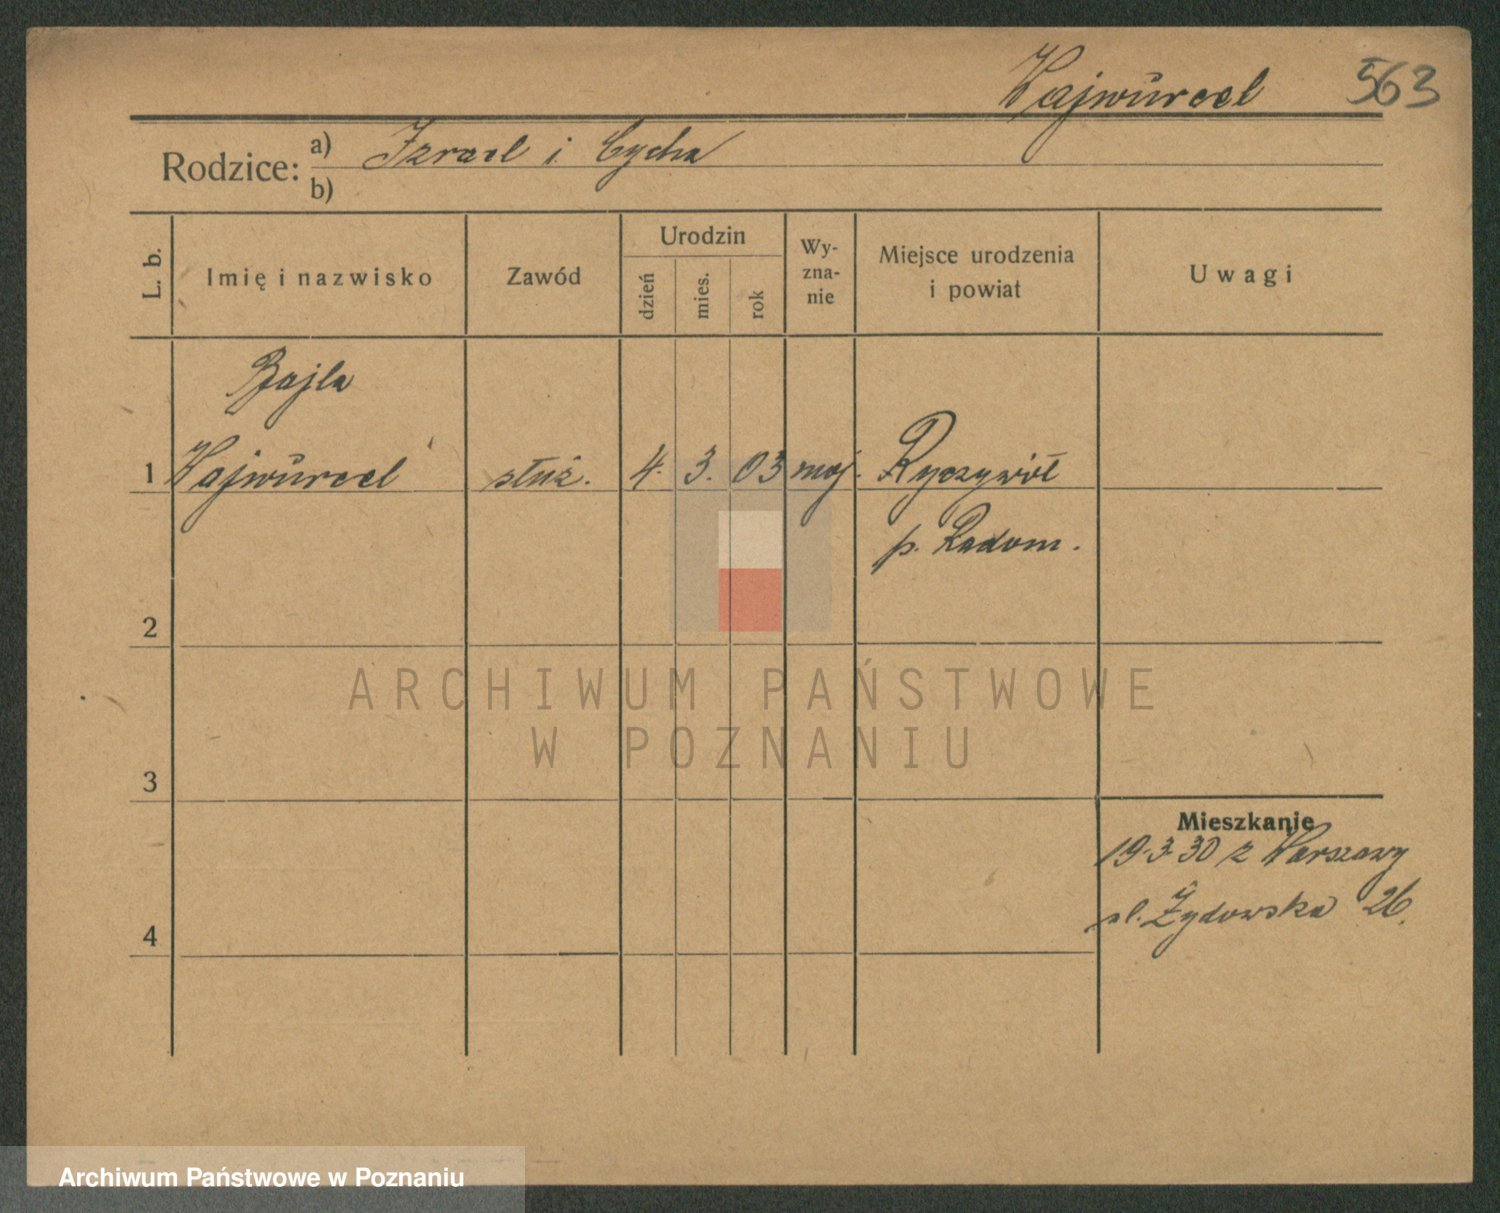 Wajwürcel 563
Rodzice: a) Izrael i Cycha
b)
L. b. Imię i nazwisko Zawód Urodzin dzień mies. rok Wyzna-nie Miejsce urodzenia i powiat Uwagi
Bajla
1 Wajwürcel służ. 4. 3. 03 moj. Ryczywół
p. Radom.
2
ARCHIWUM PAŃSTWOWE
W POZNANIU
3
Mieszkanie
19.3.30 z Warszawy
ul. Żydowska 26.
4
Archiwum Państwowe w Poznaniu